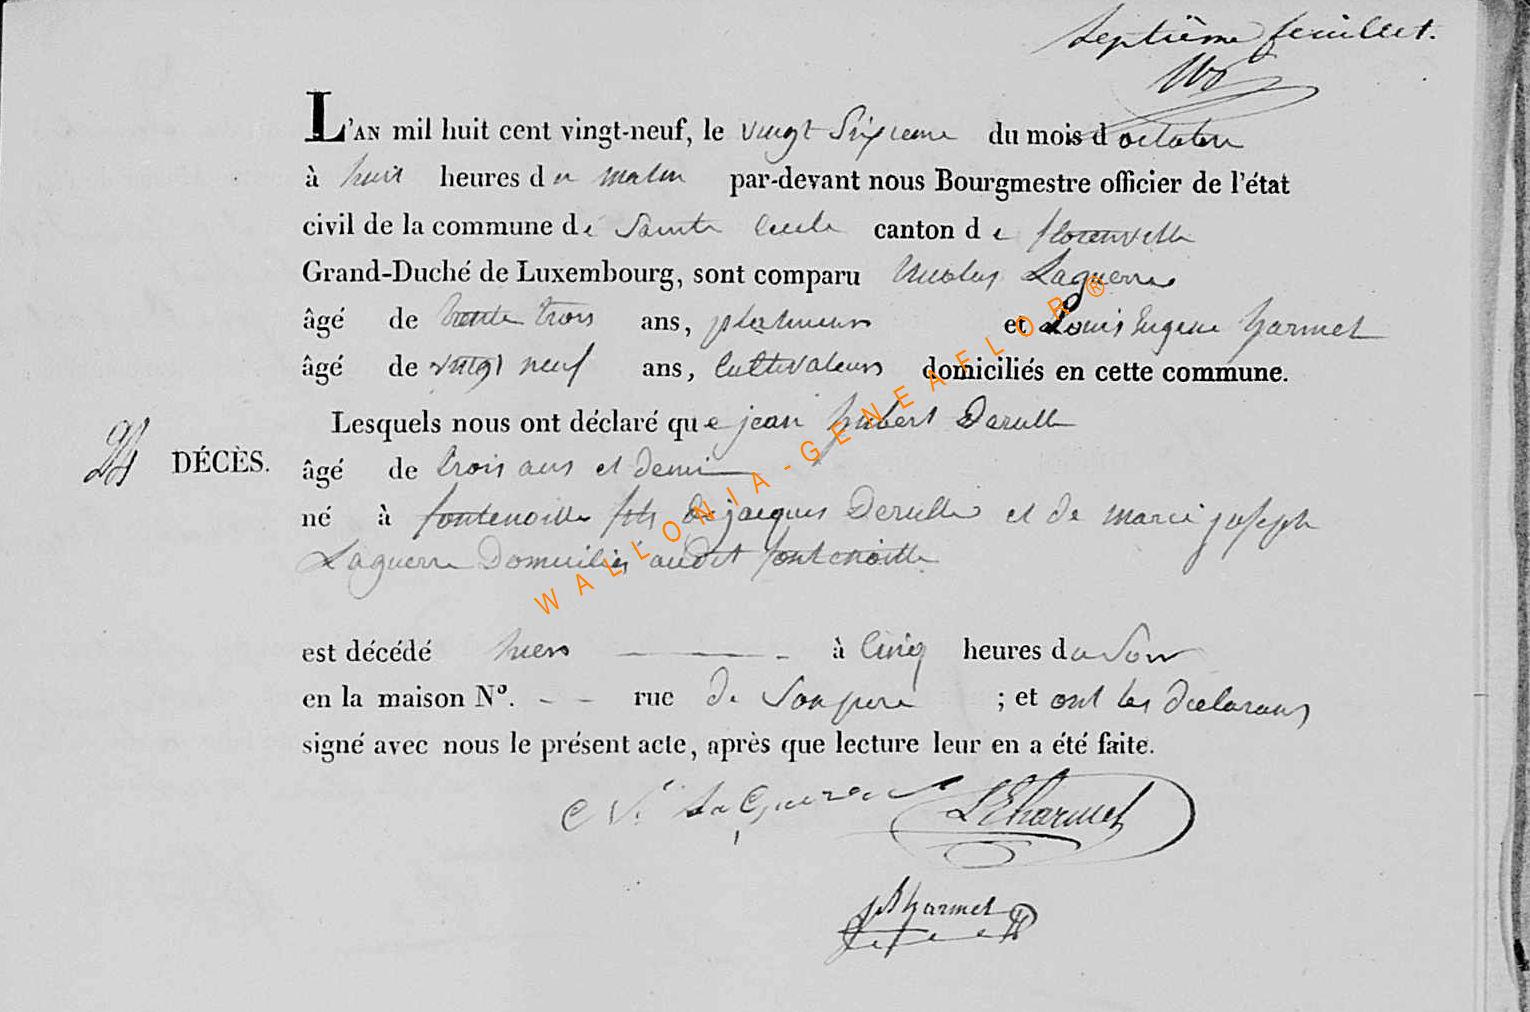 Septième feuillet.
L'AN mil huit cent vingt-neuf, le vingt Sixieme du mois d octobre
à huit heures du matin par-devant nous Bourgmestre officier de l'état
civil de la commune de Sainte Cecile canton de florenville
Grand-Duché de Luxembourg, sont comparu Nicolas Laguerre
âgé de trente trois ans, et Louis Eugene harmel
âgé de vingt neuf ans, Cultivateurs domiciliés en cette commune.
Lesquels nous ont déclaré que jean hubert Derulle
DÉCÈS.
âgé de trois ans et demi
né à fontenoille fils de jacques Derulle et de marie joseph
Laguerre Domiciliés audit fontenoille
est décédé hiers à Cinq heures du Soir
en la maison N°. - - rue de ; et ont les declarans
signé avec nous le présent acte, après que lecture leur en a été faite.
LaGuerre LEharmel
harmel
WALLONIA-GENEAFLOR®